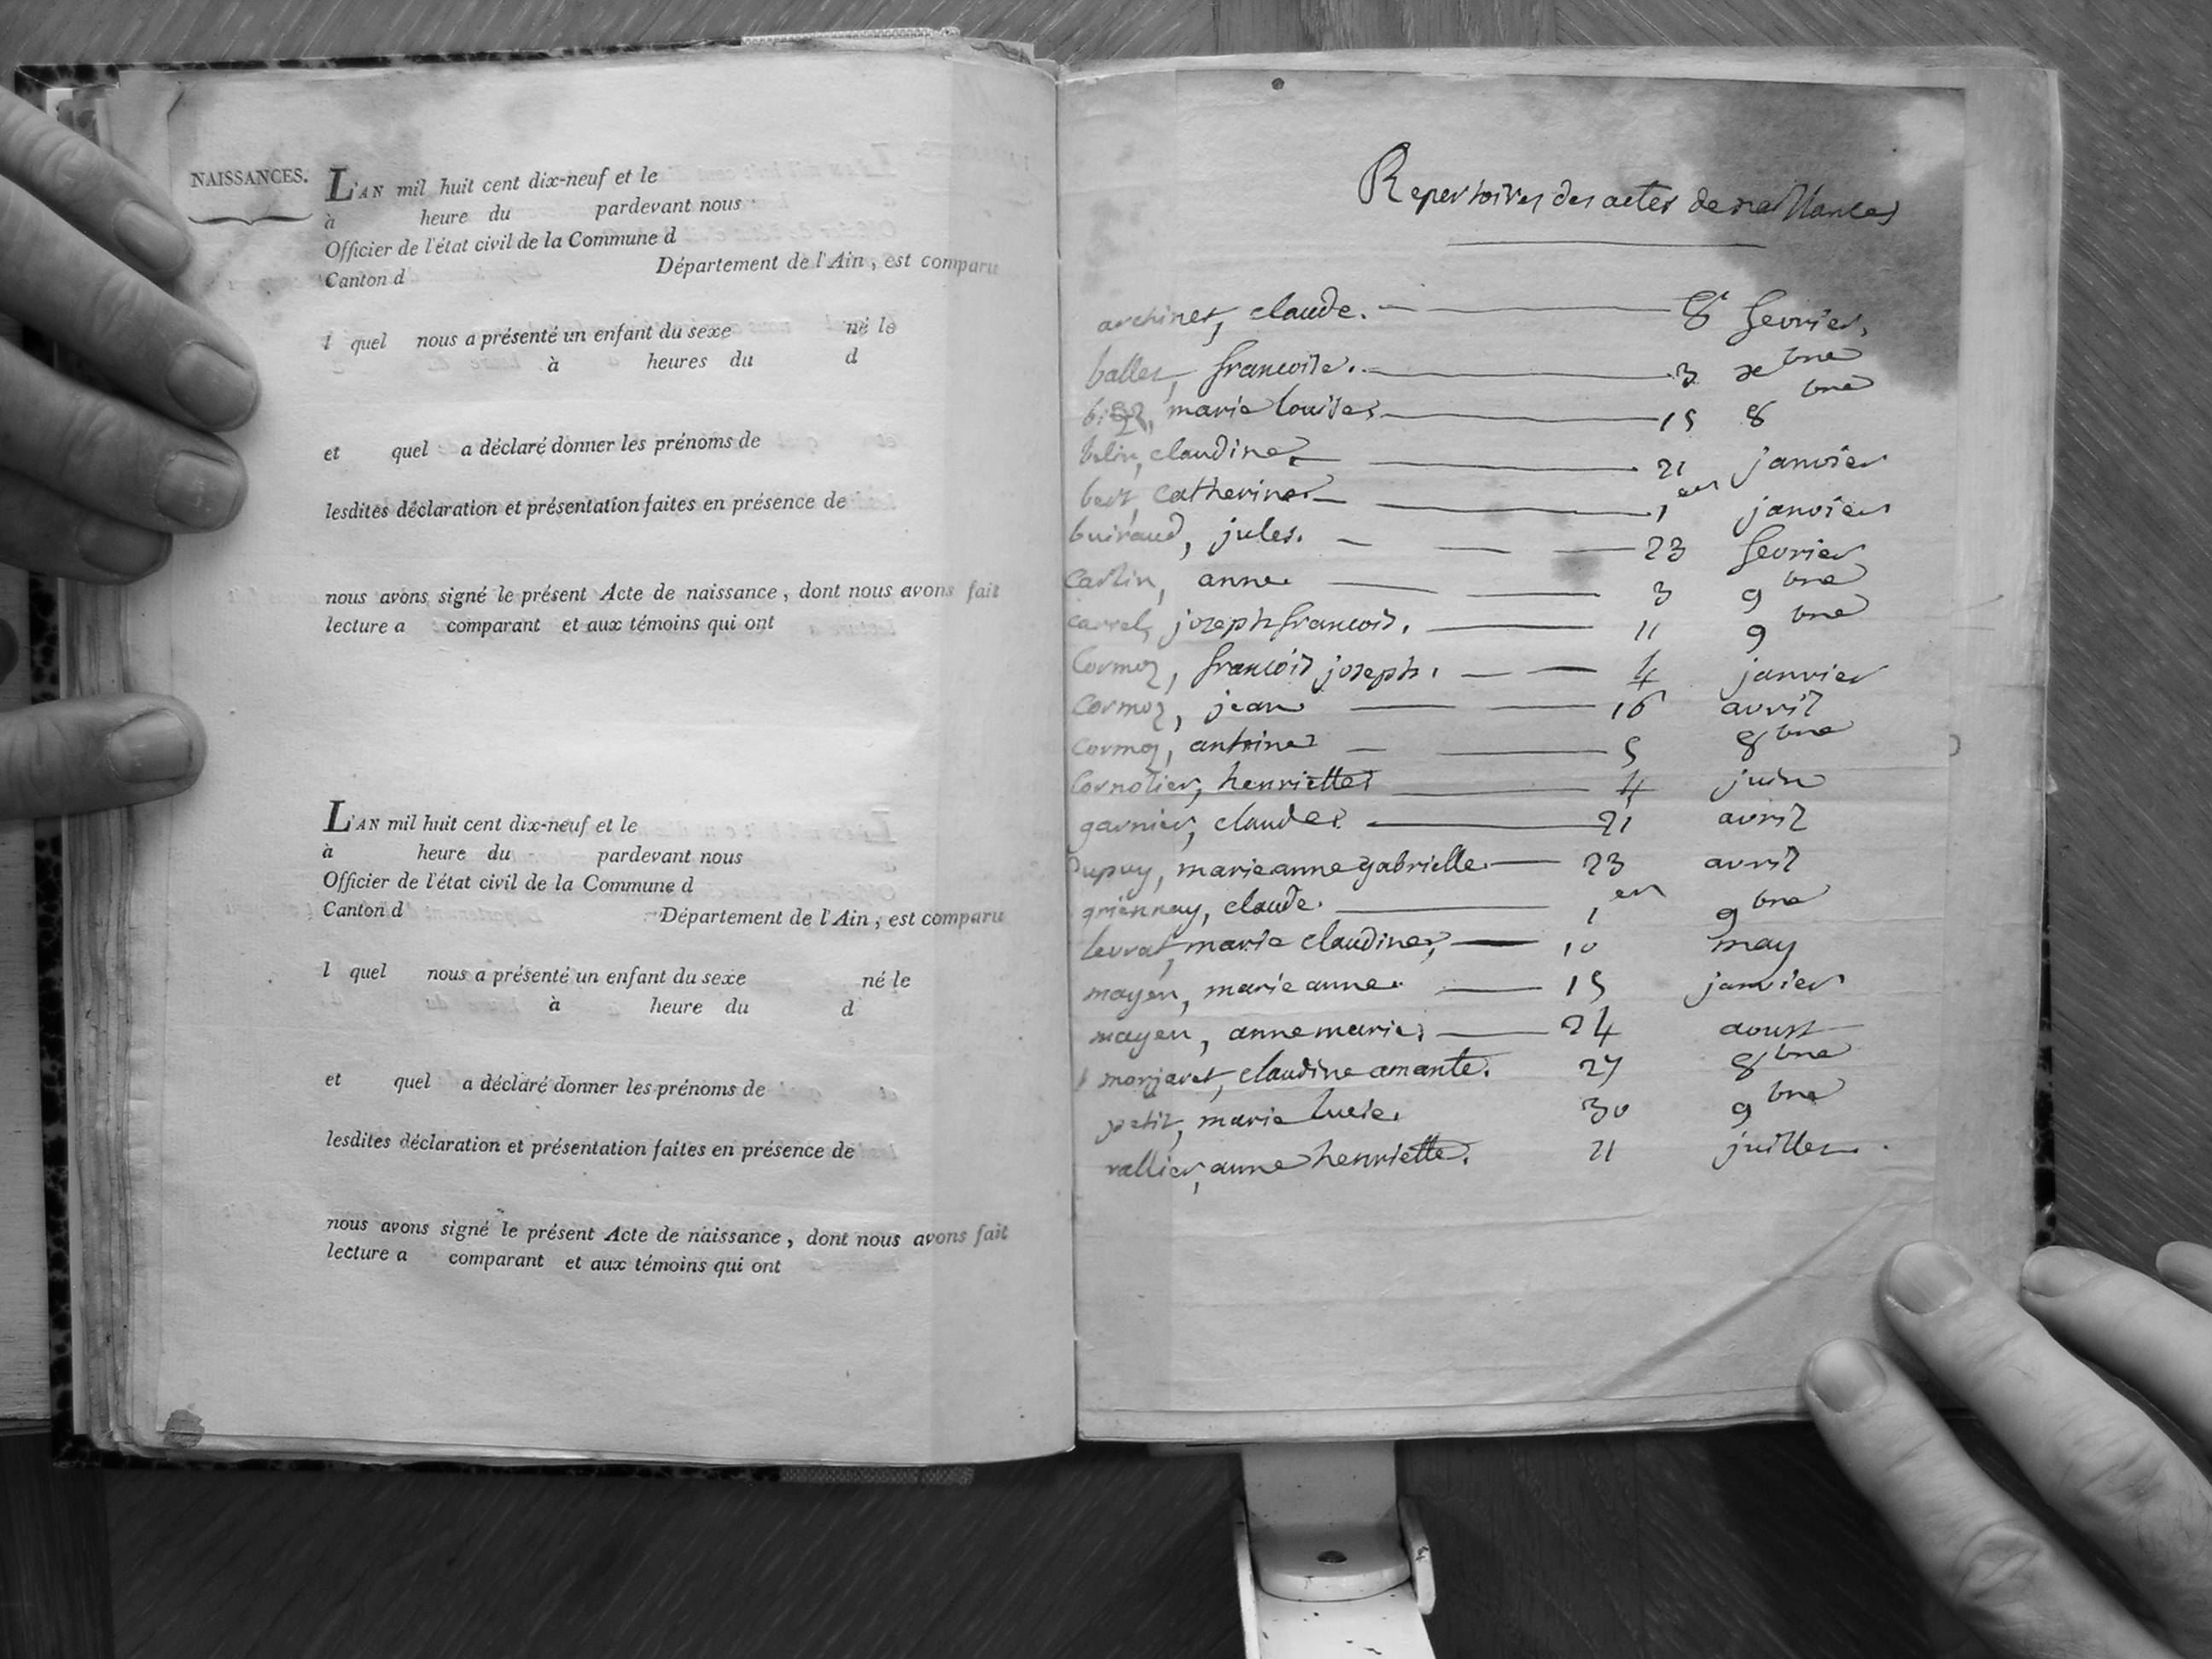 NAISSANCES.
L'AN mil huit cent dix-neuf et le
à heure du pardevant nous
Officier de l'état civil de la Commune d
Canton d Département de l'Ain, est comparu
l quel nous a présenté un enfant du sexe né le
à heures du d
et quel a déclaré donner les prénoms de
lesdites déclaration et présentation faites en présence de
nous avons signé le présent Acte de naissance, dont nous avons fait
lecture a comparant et aux témoins qui ont
L'AN mil huit cent dix-neuf et le
à heure du pardevant nous
Officier de l'état civil de la Commune d
Canton d Département de l'Ain, est comparu
l quel nous a présenté un enfant du sexe né le
à heure du d
et quel a déclaré donner les prénoms de
lesdites déclaration et présentation faites en présence de
nous avons signé le présent Acte de naissance, dont nous avons fait
lecture a comparant et aux témoins qui ont
Repertoires des actes de naissances
archinet, claude. 8 fevrier,
ballet, francoise. 3 xbre
marie louise 15 8bre
blin, claudine 21 janvier
catherine 1er janvier
buiraud, jules. 23 fevrier
carlin, anne 3 9bre
carrel, joseph francois. 11 9bre
Cormoz, francois joseph. 4 janvier
Cormoz, jean 16 avril
Cormoz, antoine 5 8bre
Cornolier, henriette 4 juin
garnier, claude 21 avril
Dupuy, marie anne gabrielle. 23 avril
griennay, claude. 1er 9bre
levrat, marie claudine, 10 may
mayen, marie anne. 15 janvier
mayen, anne marie, 24 aoust
morjaret, claudine amante. 27 8bre
petit, marie lucie. 30 9bre
rallier, anne henriette. 21 juillet.